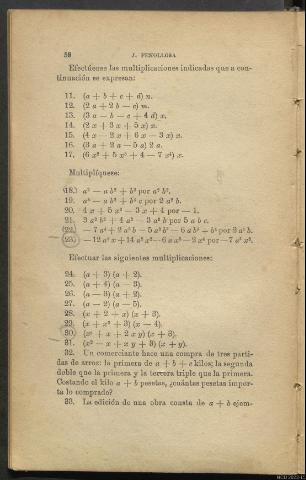 58 J. FENOLLOSA
Efectúense las multiplicaciones indicadas que a con-
tinuación se expresan:
11. (a + b + c + d) n.
12. (2 a + 2 b — c) m.
13. (3 a — b — c + 4 d) x.
14. (2 x + 3 x + 5 x) x.
15. (4 x — 2 x + 6 x — 3 x) x.
16. (3 a + 2 a — 5 a) 2 a.
17. (6 x² + 5 x³ + 4 — 7 x²) x.
Multiplíquese:
18. a² — a b² + b³ por a² b².
19. por 2 a² b.
20. 4 x + 5 x² — 3 x + 4 por — 1.
21. por 5 a b c.
22.
23.
Efectuar las siguientes multiplicaciones:
24. (a + 3) (a + 2).
25. (a + 4) (a — 3).
26. (a — 3) (a + 2).
27. (a — 2) (a — 5).
28. (x + 2 + x) (x + 3).
29. (x + x² + 3) (x — 4).
30. (x² + x + 2 x y) (x + 3).
31. (x² — x + x y + 3) (x + y).
32. Un comerciante hace una compra de tres parti-
das de arroz: la primera de a + b + c kilos; la segunda
doble que la primera y la tercera triple que la primera.
Costando el kilo a + b pesetas, ¿cuántas pesetas impor-
ta lo comprado?
33. La edición de una obra consta de a + b ejem-